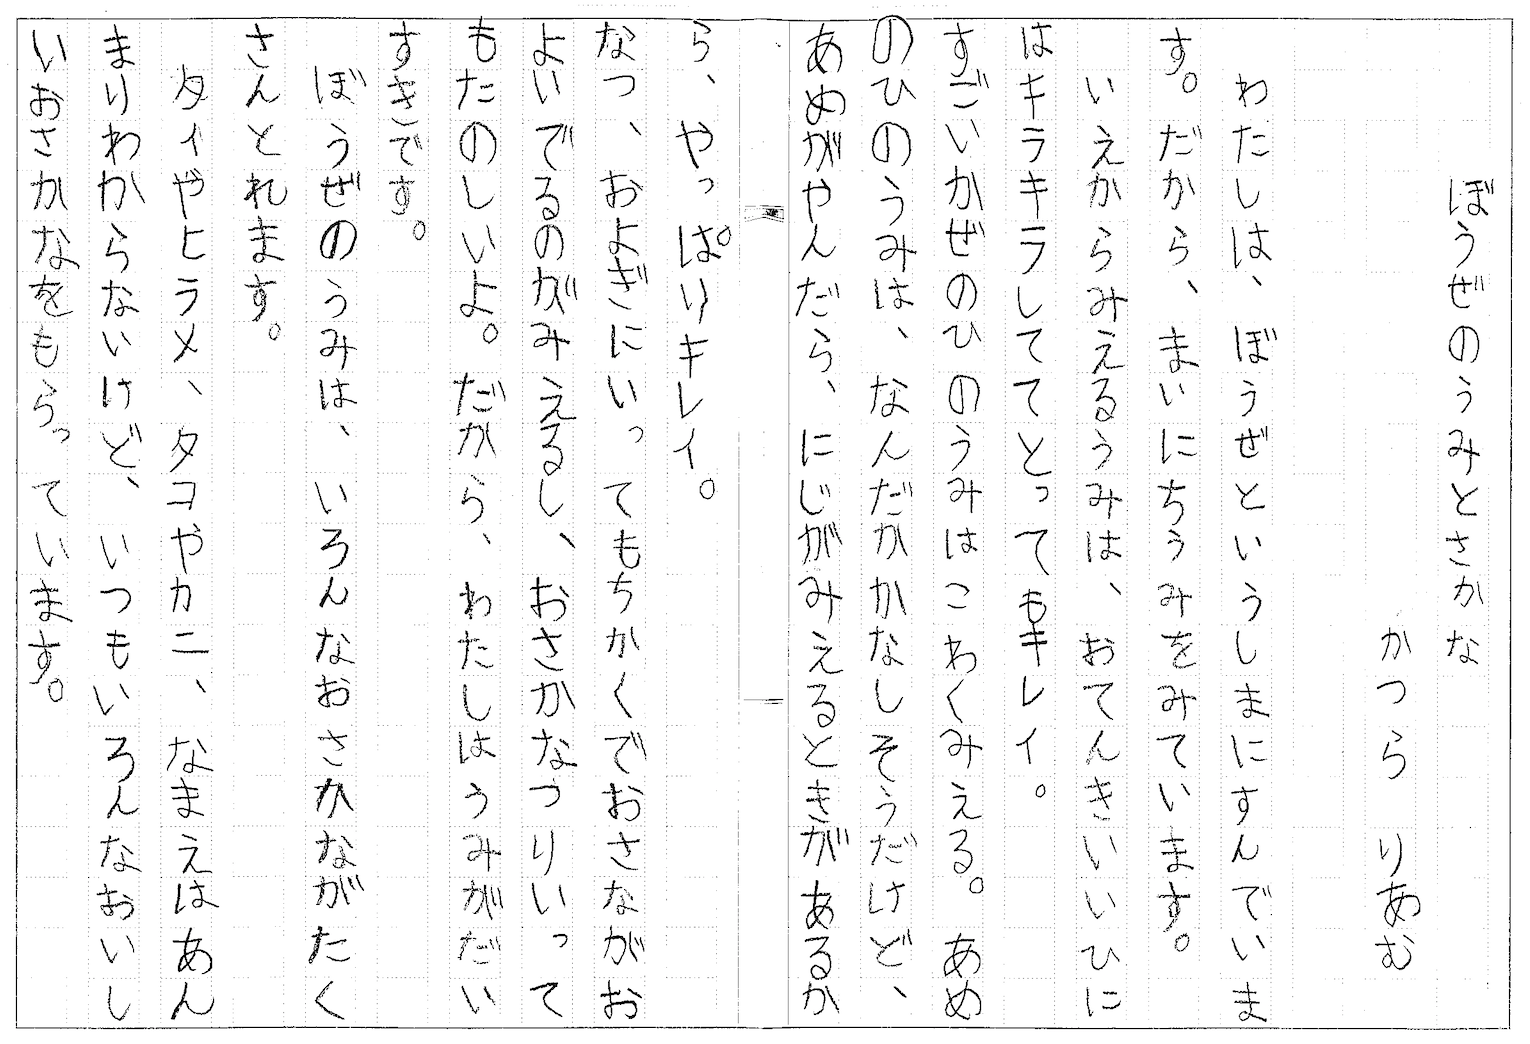 ぼうぜのうみとさかな
かつら りあむ
わたしは、ぼうぜというしまにすんでいま
す。だから、まいにちうみをみています。
いえからみえるうみは、おてんきいいひに
はキラキラしててとってもキレイ。
すごいかぜのひのうみはこわくみえる。あめ
のひのうみは、なんだかかなしそうだけど、
あめがやんだら、にじがみえるときがあるか
ら、やっぱりキレイ。
なつ、およぎにいってもちかくでおさながお
よいでるのがみえるし、おさかなつりいって
もたのしいよ。だから、わたしはうみがだい
すきです。
ぼうぜのうみは、いろんなおさかながたく
さんとれます。
タイやヒラメ、タコやカニ、なまえはあん
まりわからないけど、いつもいろんなおいし
いおさかなをもらっています。